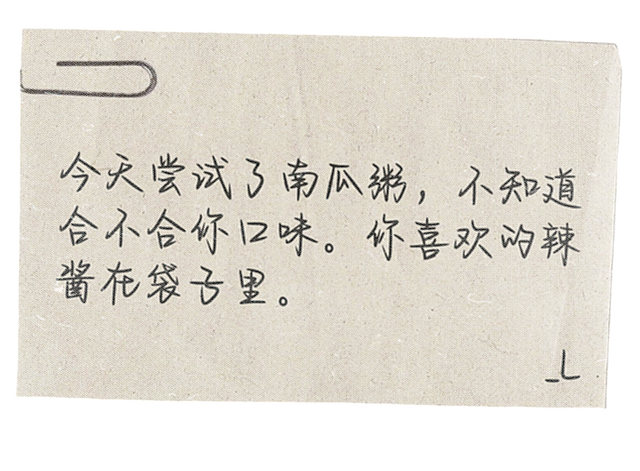 今天尝试了南瓜粥，不知道
合不合你口味。你喜欢的辣
酱在袋子里。
_L